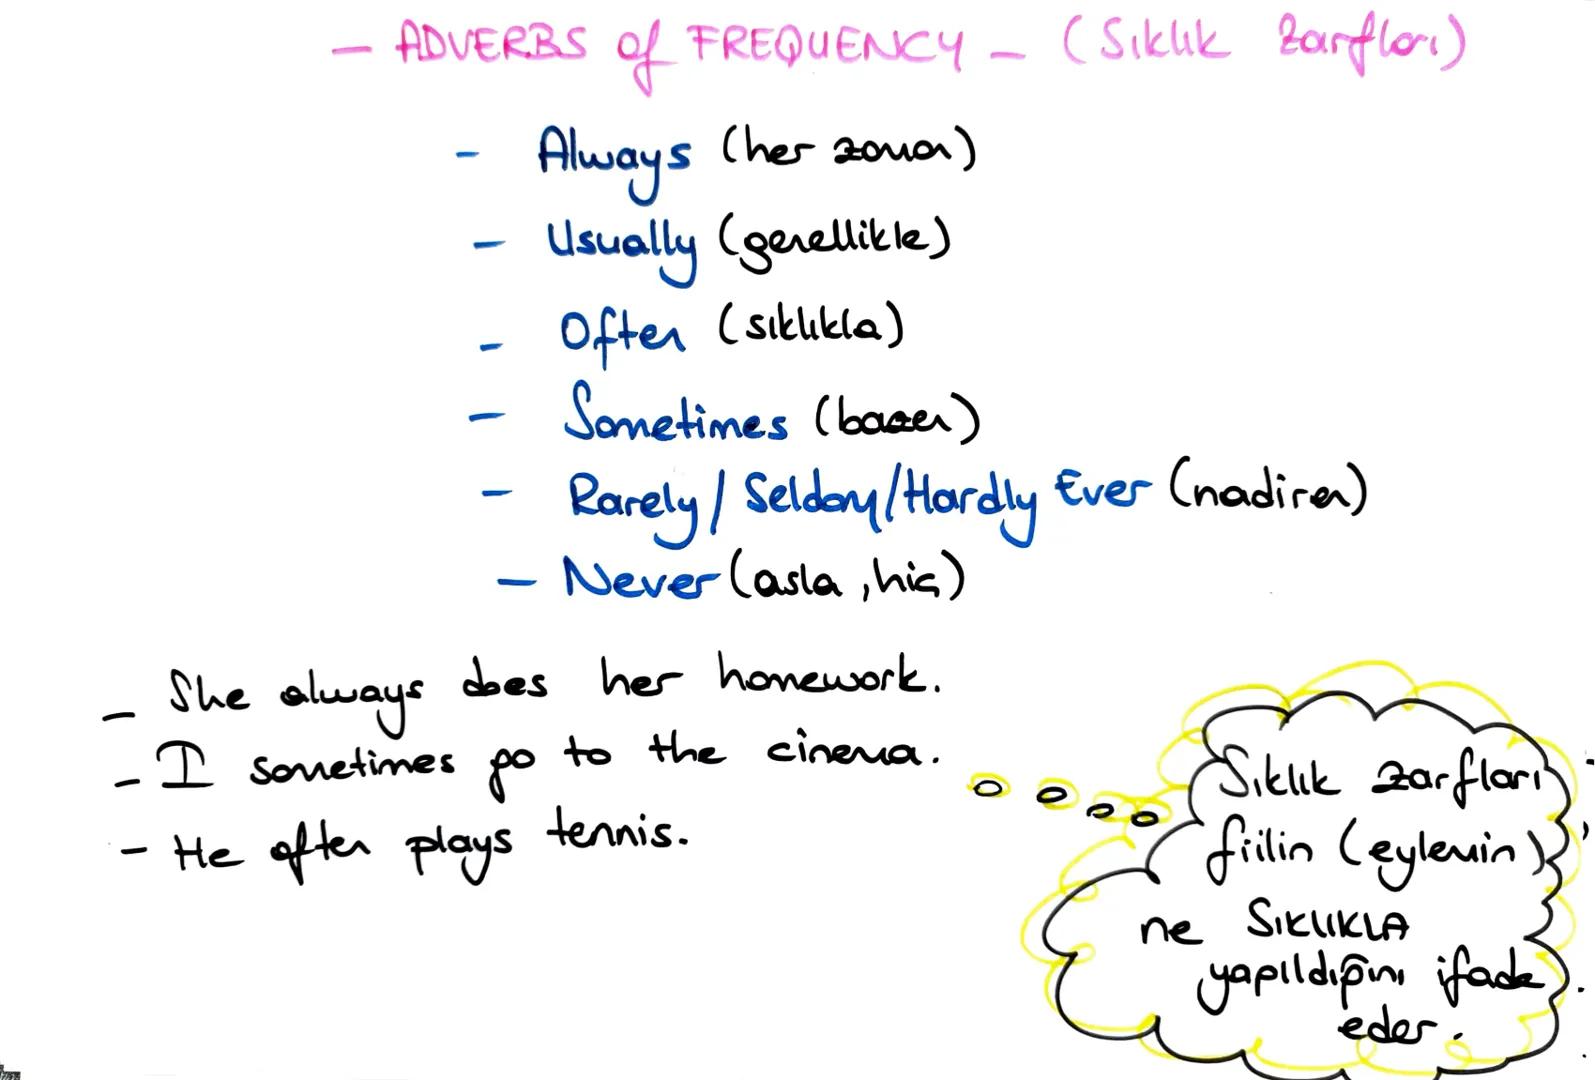 - ADVERBS of FREQUENCY - (Sıklık Zarfları)
- Always (her zaman)
- Usually (genellikle)
- Often (sıklıkla)
- Sometimes (bazen)
- Rarely / Seldom / Hardly Ever (nadiren)
- Never (asla, hiç)
- She always does her homework.
- I sometimes go to the cinema.
- He often plays tennis.
Sıklık zarfları
fiilin (eylemin)
ne SIKLIKLA
yapıldığını ifade
eder.